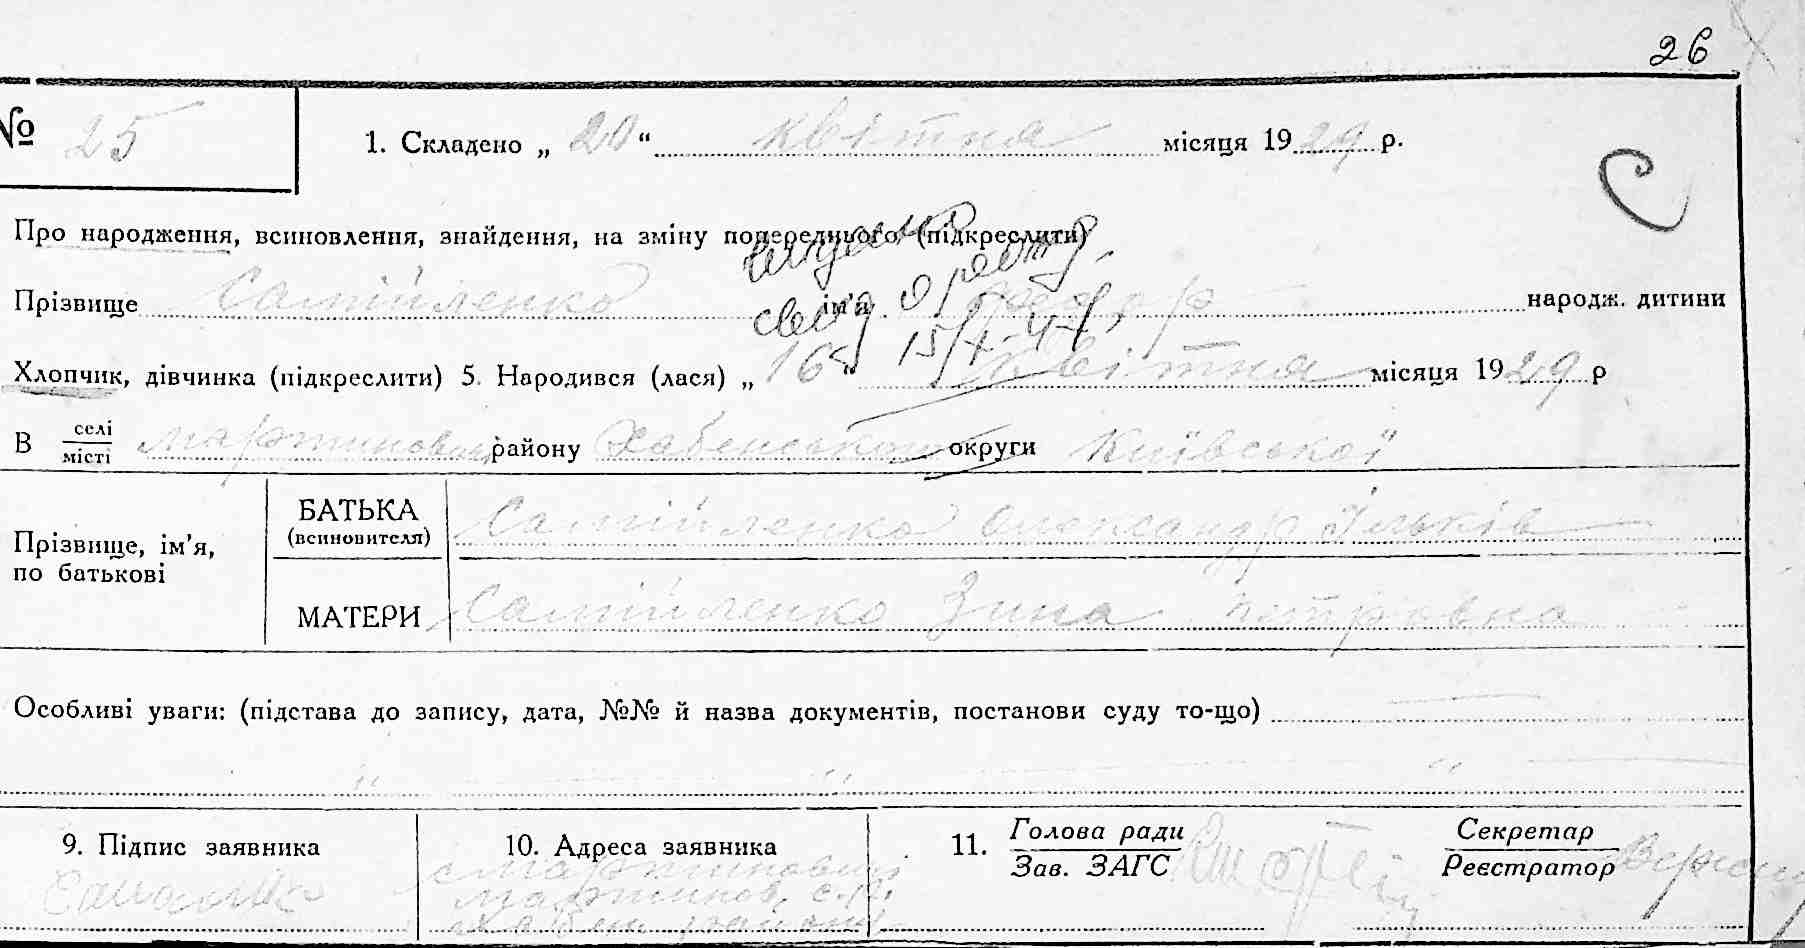 26
№ 25
1. Складено „ 20 “ квітня місяця 19 29 р.
С
Про народження, всиновлення, знайдення, на зміну попереднього (підкреслити)
Прізвище Самійленко ім'я народж. дитини
15/X-47
Хлопчик, дівчинка (підкреслити) 5. Народився (лася) „ 16 “ квітня місяця 19 29 р
В селі/місті Мартинович району Хабенського округи Київської
Прізвище, ім'я, по батькові
БАТЬКА (всиновителя) Самійленко Олександр Ільків
МАТЕРИ Самійленко Зина Петровна
Особливі уваги: (підстава до запису, дата, №№ й назва документів, постанови суду то-що)
" " "
9. Підпис заявника
10. Адреса заявника
с Мартинович
Мартинов. с.р.
Хабен. району
11. Голова ради/Зав. ЗАГС
Секретар/Реєстратор